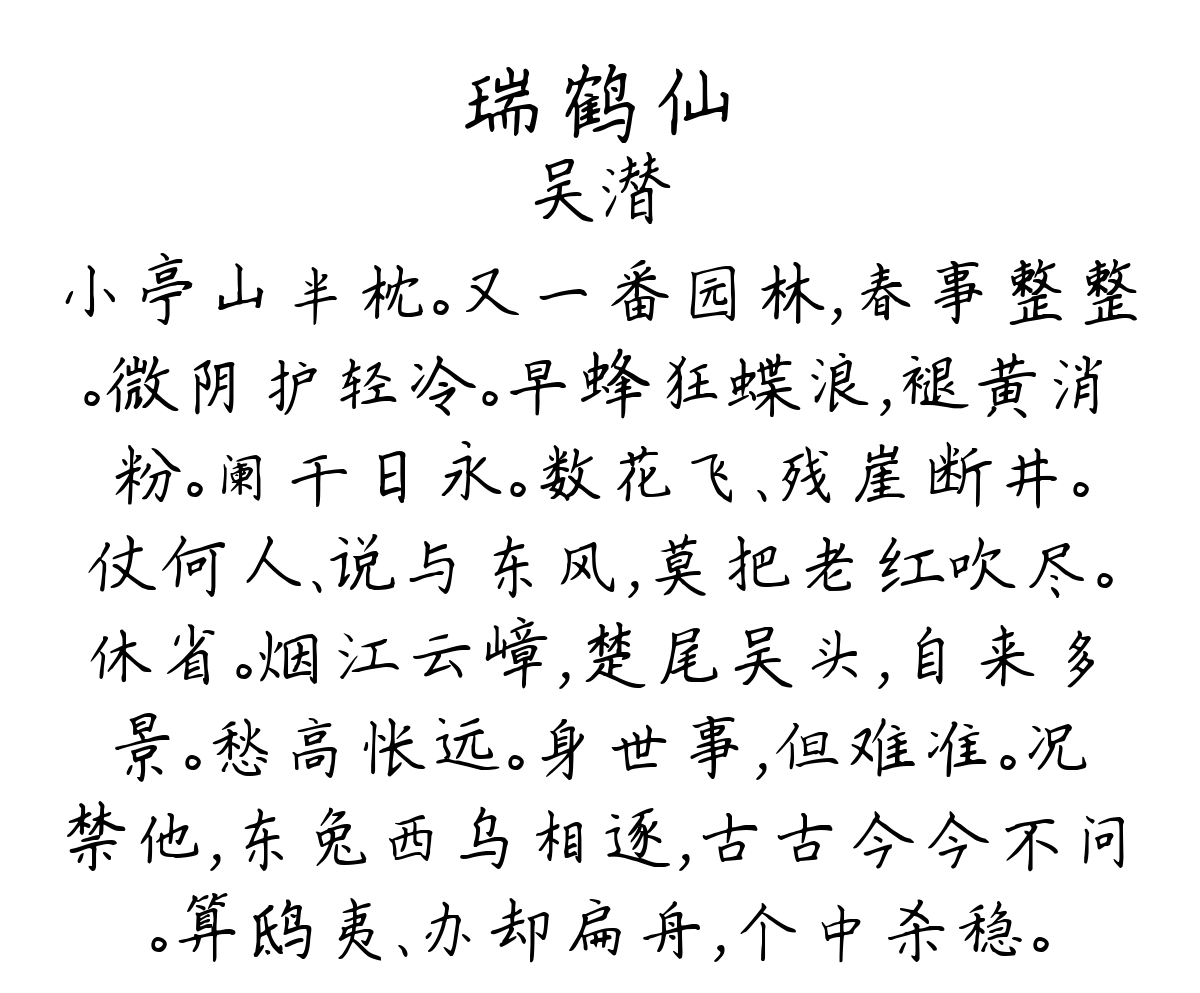 瑞鹤仙
吴潜
小亭山半枕。又一番园林,春事整整
。微阴护轻冷。早蜂狂蝶浪,褪黄消
粉。阑干日永。数花飞、残崖断井。
仗何人、说与东风,莫把老红吹尽。
休省。烟江云嶂,楚尾吴头,自来多
景。愁高怅远。身世事,但难准。况
禁他,东兔西乌相逐,古古今今不问
。算鸱夷、办却扁舟,个中杀稳。